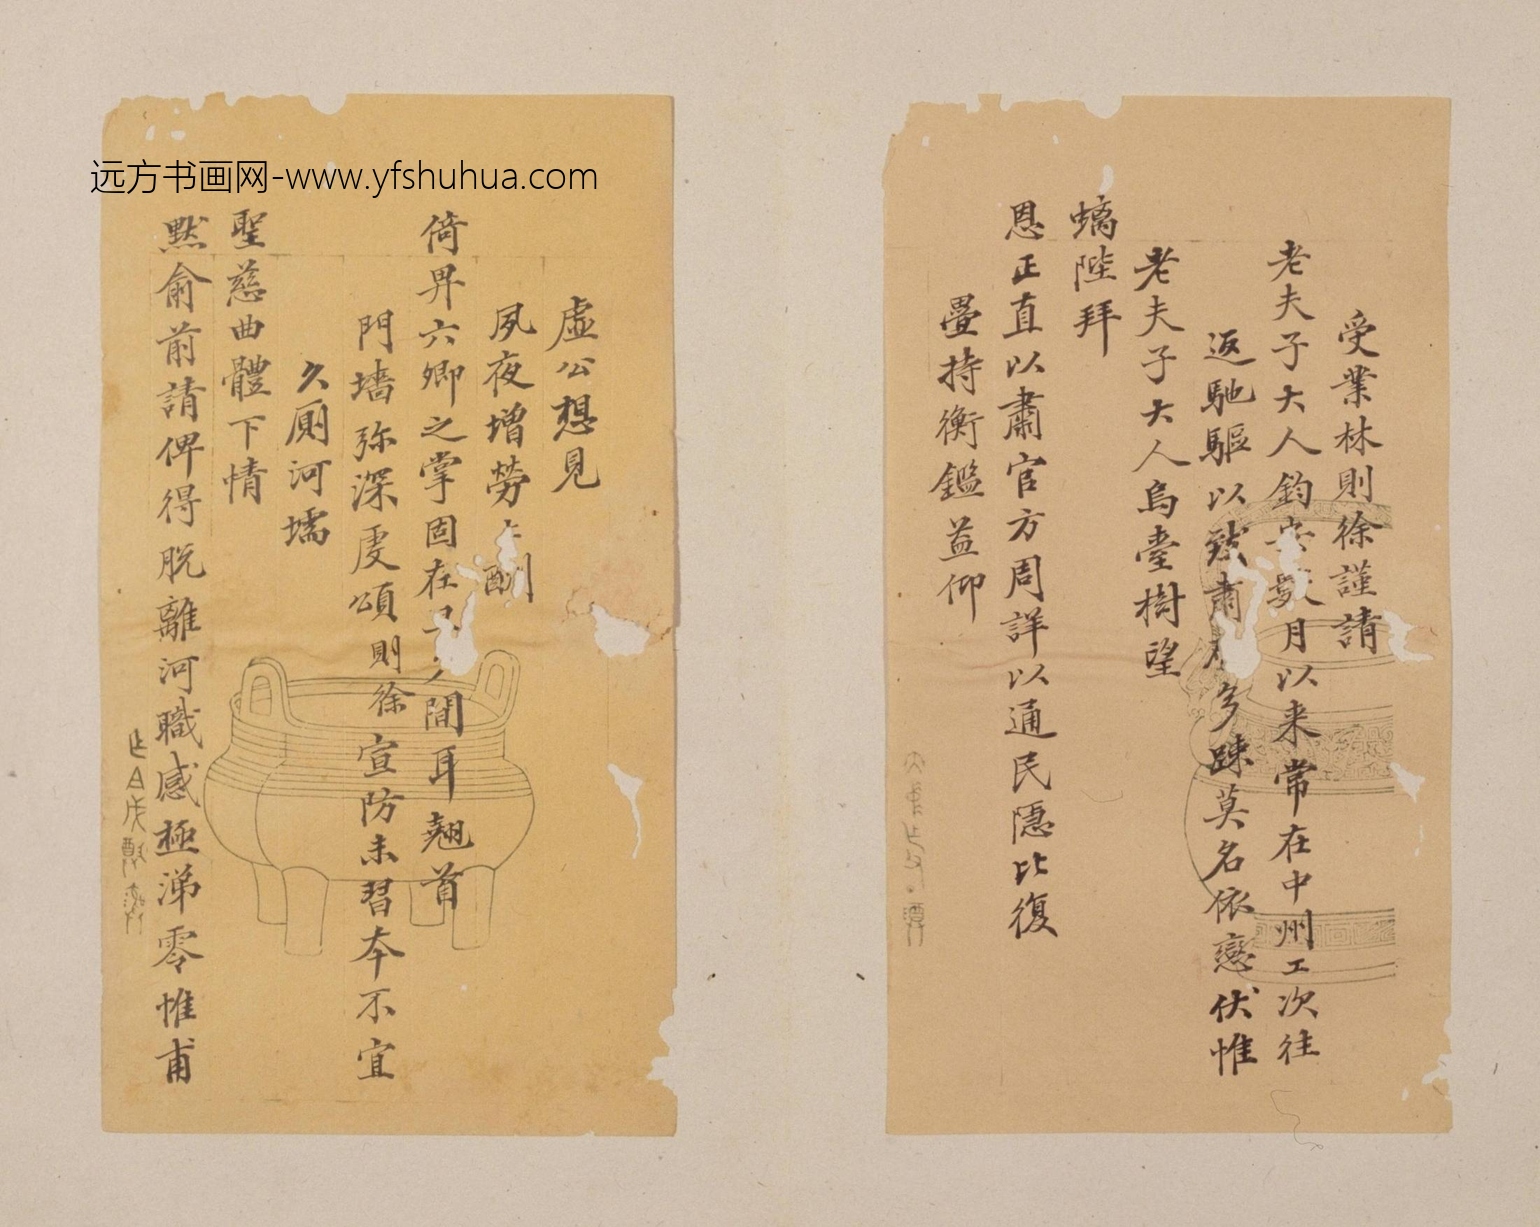 受業林則徐謹請
老夫子大人鈞安數月以来常在中州工次往
返馳驅以致肅多踈莫名依戀伏惟
老夫子大人烏臺樹望
螭陛拜
恩正直以肅官方周詳以通民隱比復
疊持衡鑑益仰
虛公想見
夙夜增勞酬
倚畀六卿之掌固在間耳翹首
門墻弥深虔頌則徐宣防未習本不宜
久厠河壖
聖慈曲體下情
黙俞前請俾得脫離河職感極涕零惟甫
远方书画网-www.yfshuhua.com